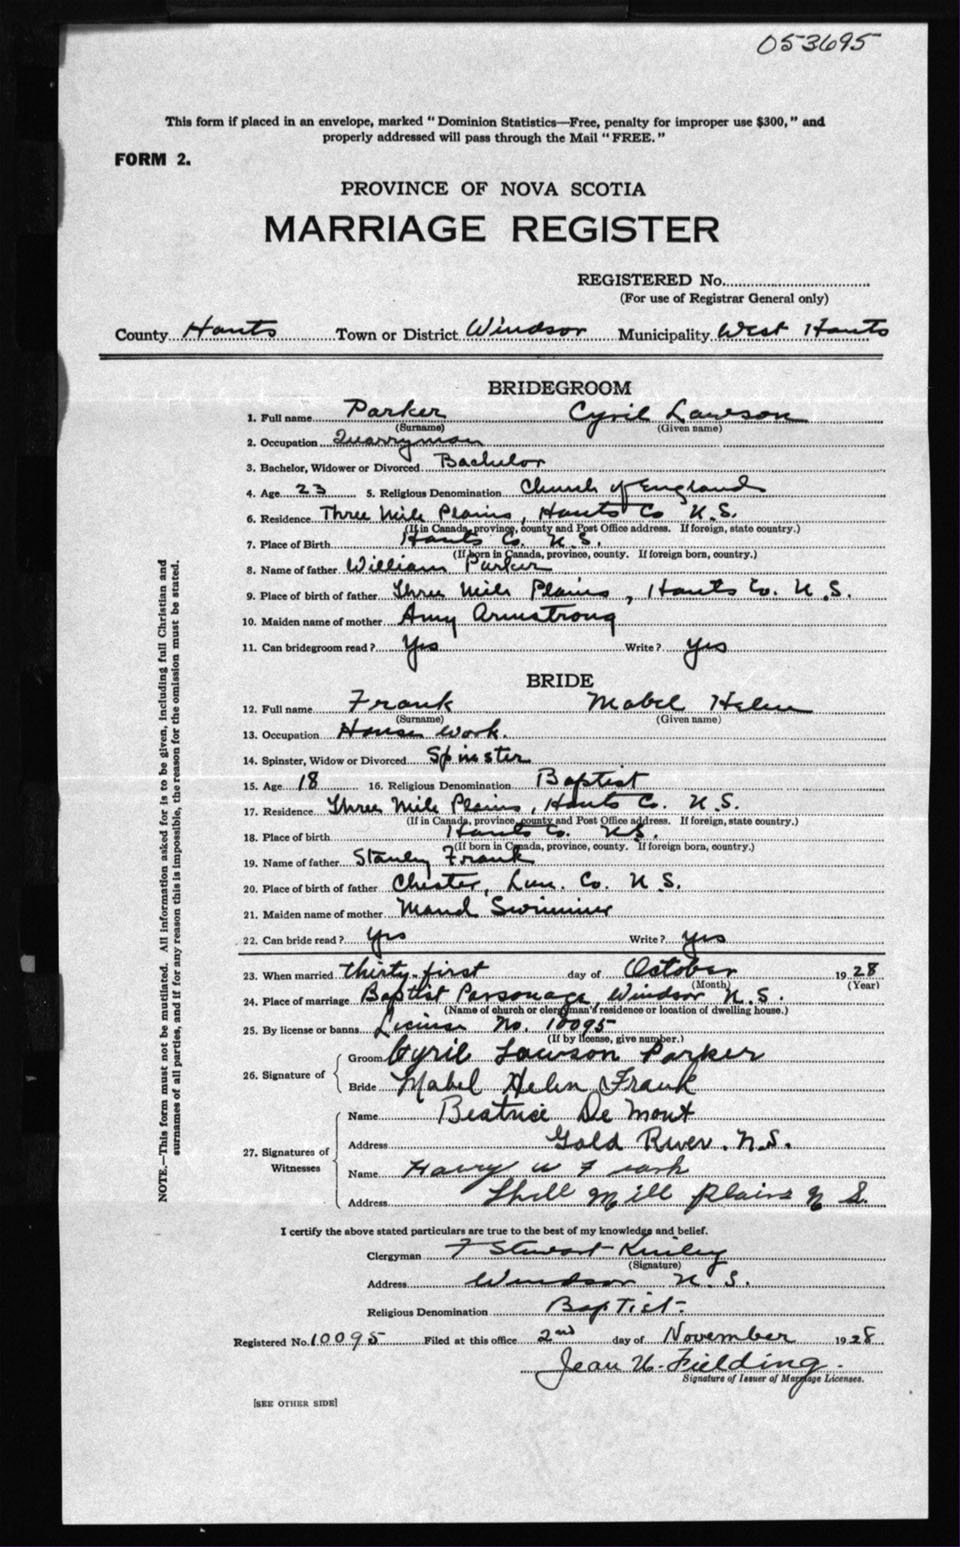 053695
This form if placed in an envelope, marked "Dominion Statistics—Free, penalty for improper use $300," and
properly addressed will pass through the Mail "FREE."
FORM 2.
PROVINCE OF NOVA SCOTIA
MARRIAGE REGISTER
REGISTERED No.
(For use of Registrar General only)
County Hants Town or District Windsor Municipality West Hants
BRIDEGROOM
1. Full name Parker Cyril Lawson
(Surname) (Given name)
2. Occupation Quarryman
3. Bachelor, Widower or Divorced Bachelor
4. Age 23 5. Religious Denomination Church of England
6. Residence Three Mile Plains, Hants Co N.S.
(If in Canada, province, county and Post Office address. If foreign, state country.)
7. Place of Birth Hants Co. N.S.
(If born in Canada, province, county. If foreign born, country.)
8. Name of father William Parker
9. Place of birth of father Three Mile Plains, Hants Co. N.S.
10. Maiden name of mother Amy Armstrong
11. Can bridegroom read? Yes Write? yes
BRIDE
12. Full name Frank Mabel Helen
(Surname) (Given name)
13. Occupation House work.
14. Spinster, Widow or Divorced Spinster
15. Age 18 16. Religious Denomination Baptist
17. Residence Three Mile Plains, Hants Co. N.S.
(If in Canada, province, county and Post Office address. If foreign, state country.)
18. Place of birth Hants Co. N.S.
(If born in Canada, province, county. If foreign born, country.)
19. Name of father Stanley Frank
20. Place of birth of father Chester, Lun. Co. N.S.
21. Maiden name of mother Maud Swimmer
22. Can bride read? yes Write? yes
23. When married thirty-first day of October 1928
(Month) (Year)
24. Place of marriage Baptist Parsonage, Windsor N.S.
(Name of church or clergyman's residence or location of dwelling house.)
25. By license or banns License No. 10095
(If by license, give number.)
26. Signature of
Groom Cyril Lawson Parker
Bride Mabel Helen Frank
27. Signatures of Witnesses
Name Beatrice De Mont
Address Gold River. N.S.
Name Harry W Frank
Address Mill Plains N S.
I certify the above stated particulars are true to the best of my knowledge and belief.
Clergyman F Stewart Kinley
(Signature)
Address Windsor N.S.
Religious Denomination Baptist.
Registered No. 10095 Filed at this office 2nd day of November 1928
Jean U. Fielding.
Signature of Issuer of Marriage Licenses.
[SEE OTHER SIDE]
NOTE.—This form must not be mutilated. All information asked for is to be given, including full Christian and
surnames of all parties, and if for any reason this is impossible, the reason for the omission must be stated.